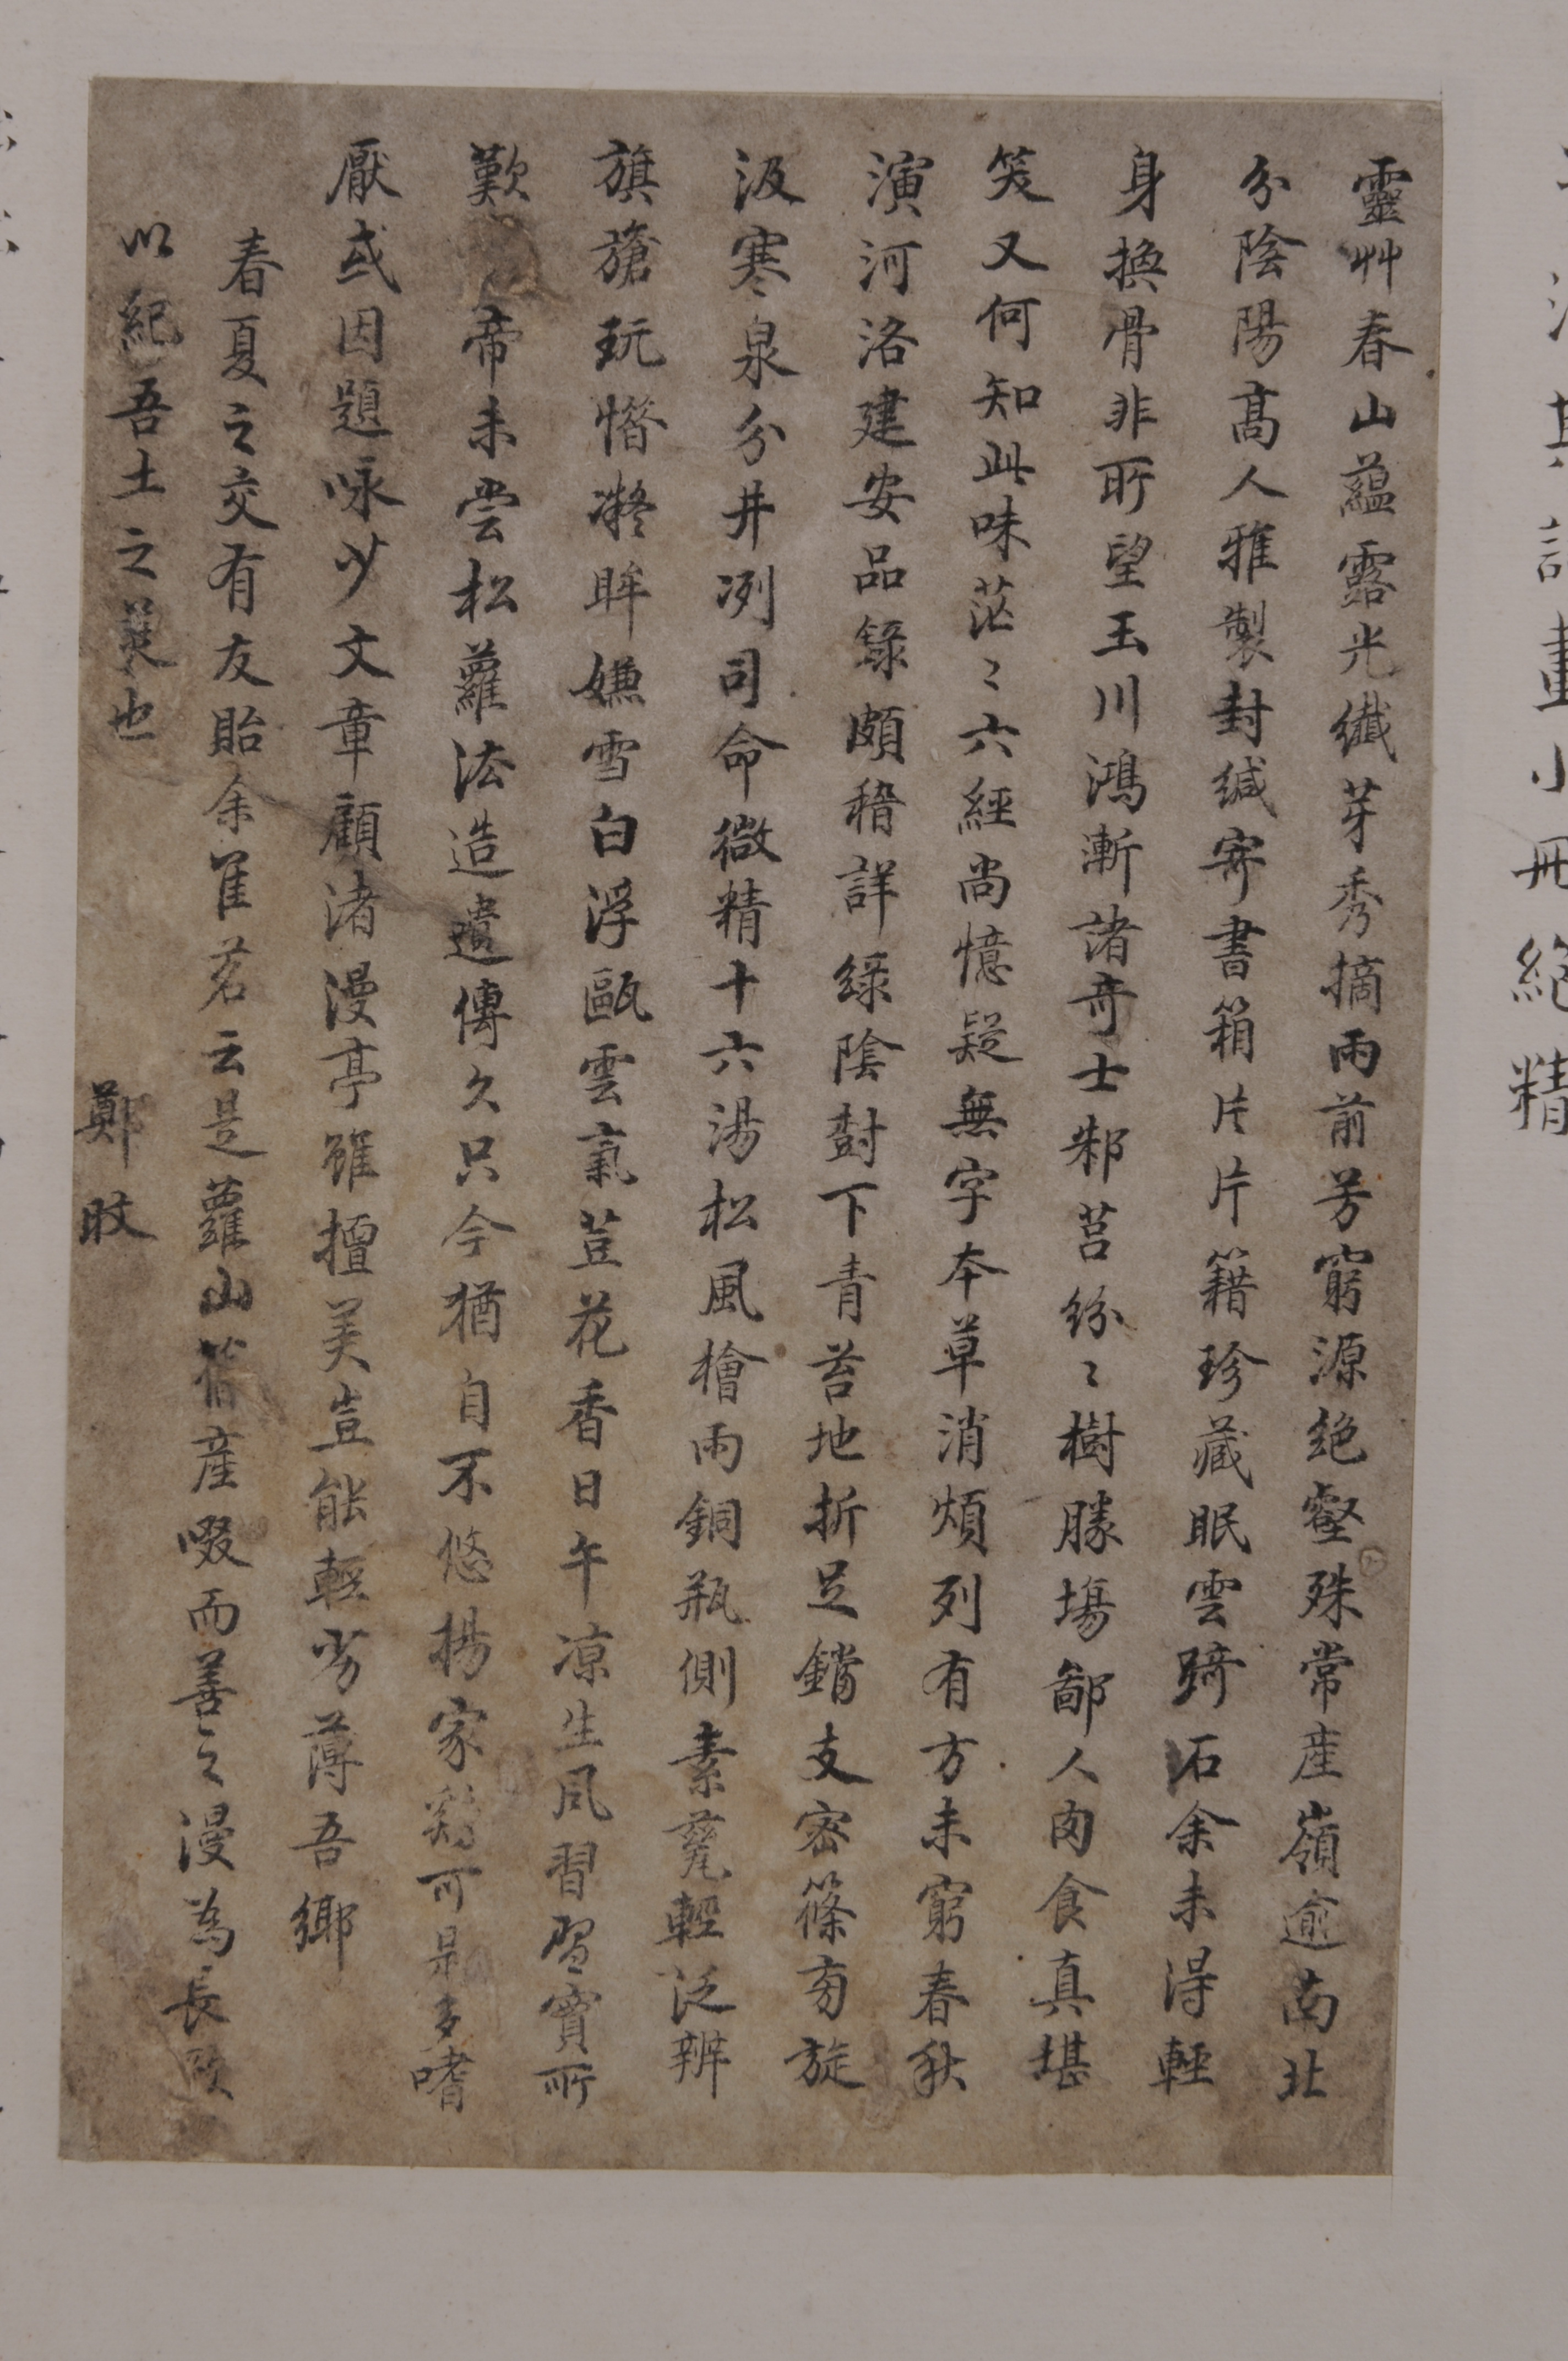 靈艸春山蘊露光纖芽秀摘雨前芳窮源絶壑殊常産嶺逾南北
分陰陽髙人雅製封緘寄書箱片片籍珍藏眠雲踦石余未得輕
身換骨非所望玉川鴻漸諸奇士邾莒紛〻樹勝塲鄙人肉食真堪
笑又何知此味茫〻六經尚憶疑無字本草消煩列有方未窮春秋
演河洛建安品錄頗稽詳緑陰對下青苔地折足鐺支密篠旁旋
汲寒泉分井冽司命微精十六湯松風檜雨銅瓶側素甆輕泛辨
旗旝玩惜凝眸嫌雪白浮甌雲氣荳花香日午凉生風習習賓所
歎 帝未嘗松蘿法造遺傳久只今猶自不悠揚家鷄可是多嗜
厭或因題咏少文章顧渚漫亭雖擅美豈能輕劣薄吾鄉
春夏之交有友貽余隹茗云是蘿山舊産啜而善之漫為長歌
以紀吾土之羙也
鄭旼
絕精